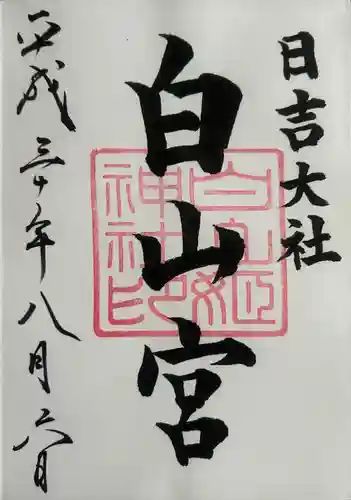 日吉大社
白山宮
白山姫
神社印
平成三十年八月六日